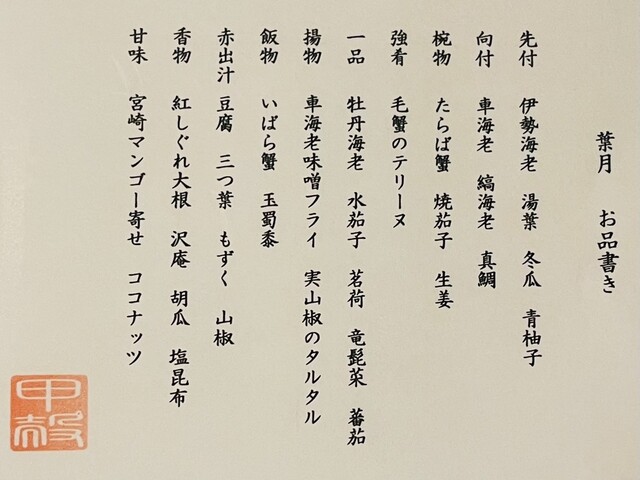 葉月　お品書き
先付　伊勢海老　湯葉　冬瓜　青柚子
向付　車海老　縞海老　真鯛
椀物　たらば蟹　焼茄子　生姜
強肴　毛蟹のテリーヌ
一品　牡丹海老　水茄子　茗荷　竜髭菜　蕃茄
揚物　車海老味噌フライ　実山椒のタルタル
飯物　いばら蟹　玉蜀黍
赤出汁　豆腐　三つ葉　もずく　山椒
香物　紅しぐれ大根　沢庵　胡瓜　塩昆布
甘味　宮崎マンゴー寄せ　ココナッツ
甲殻